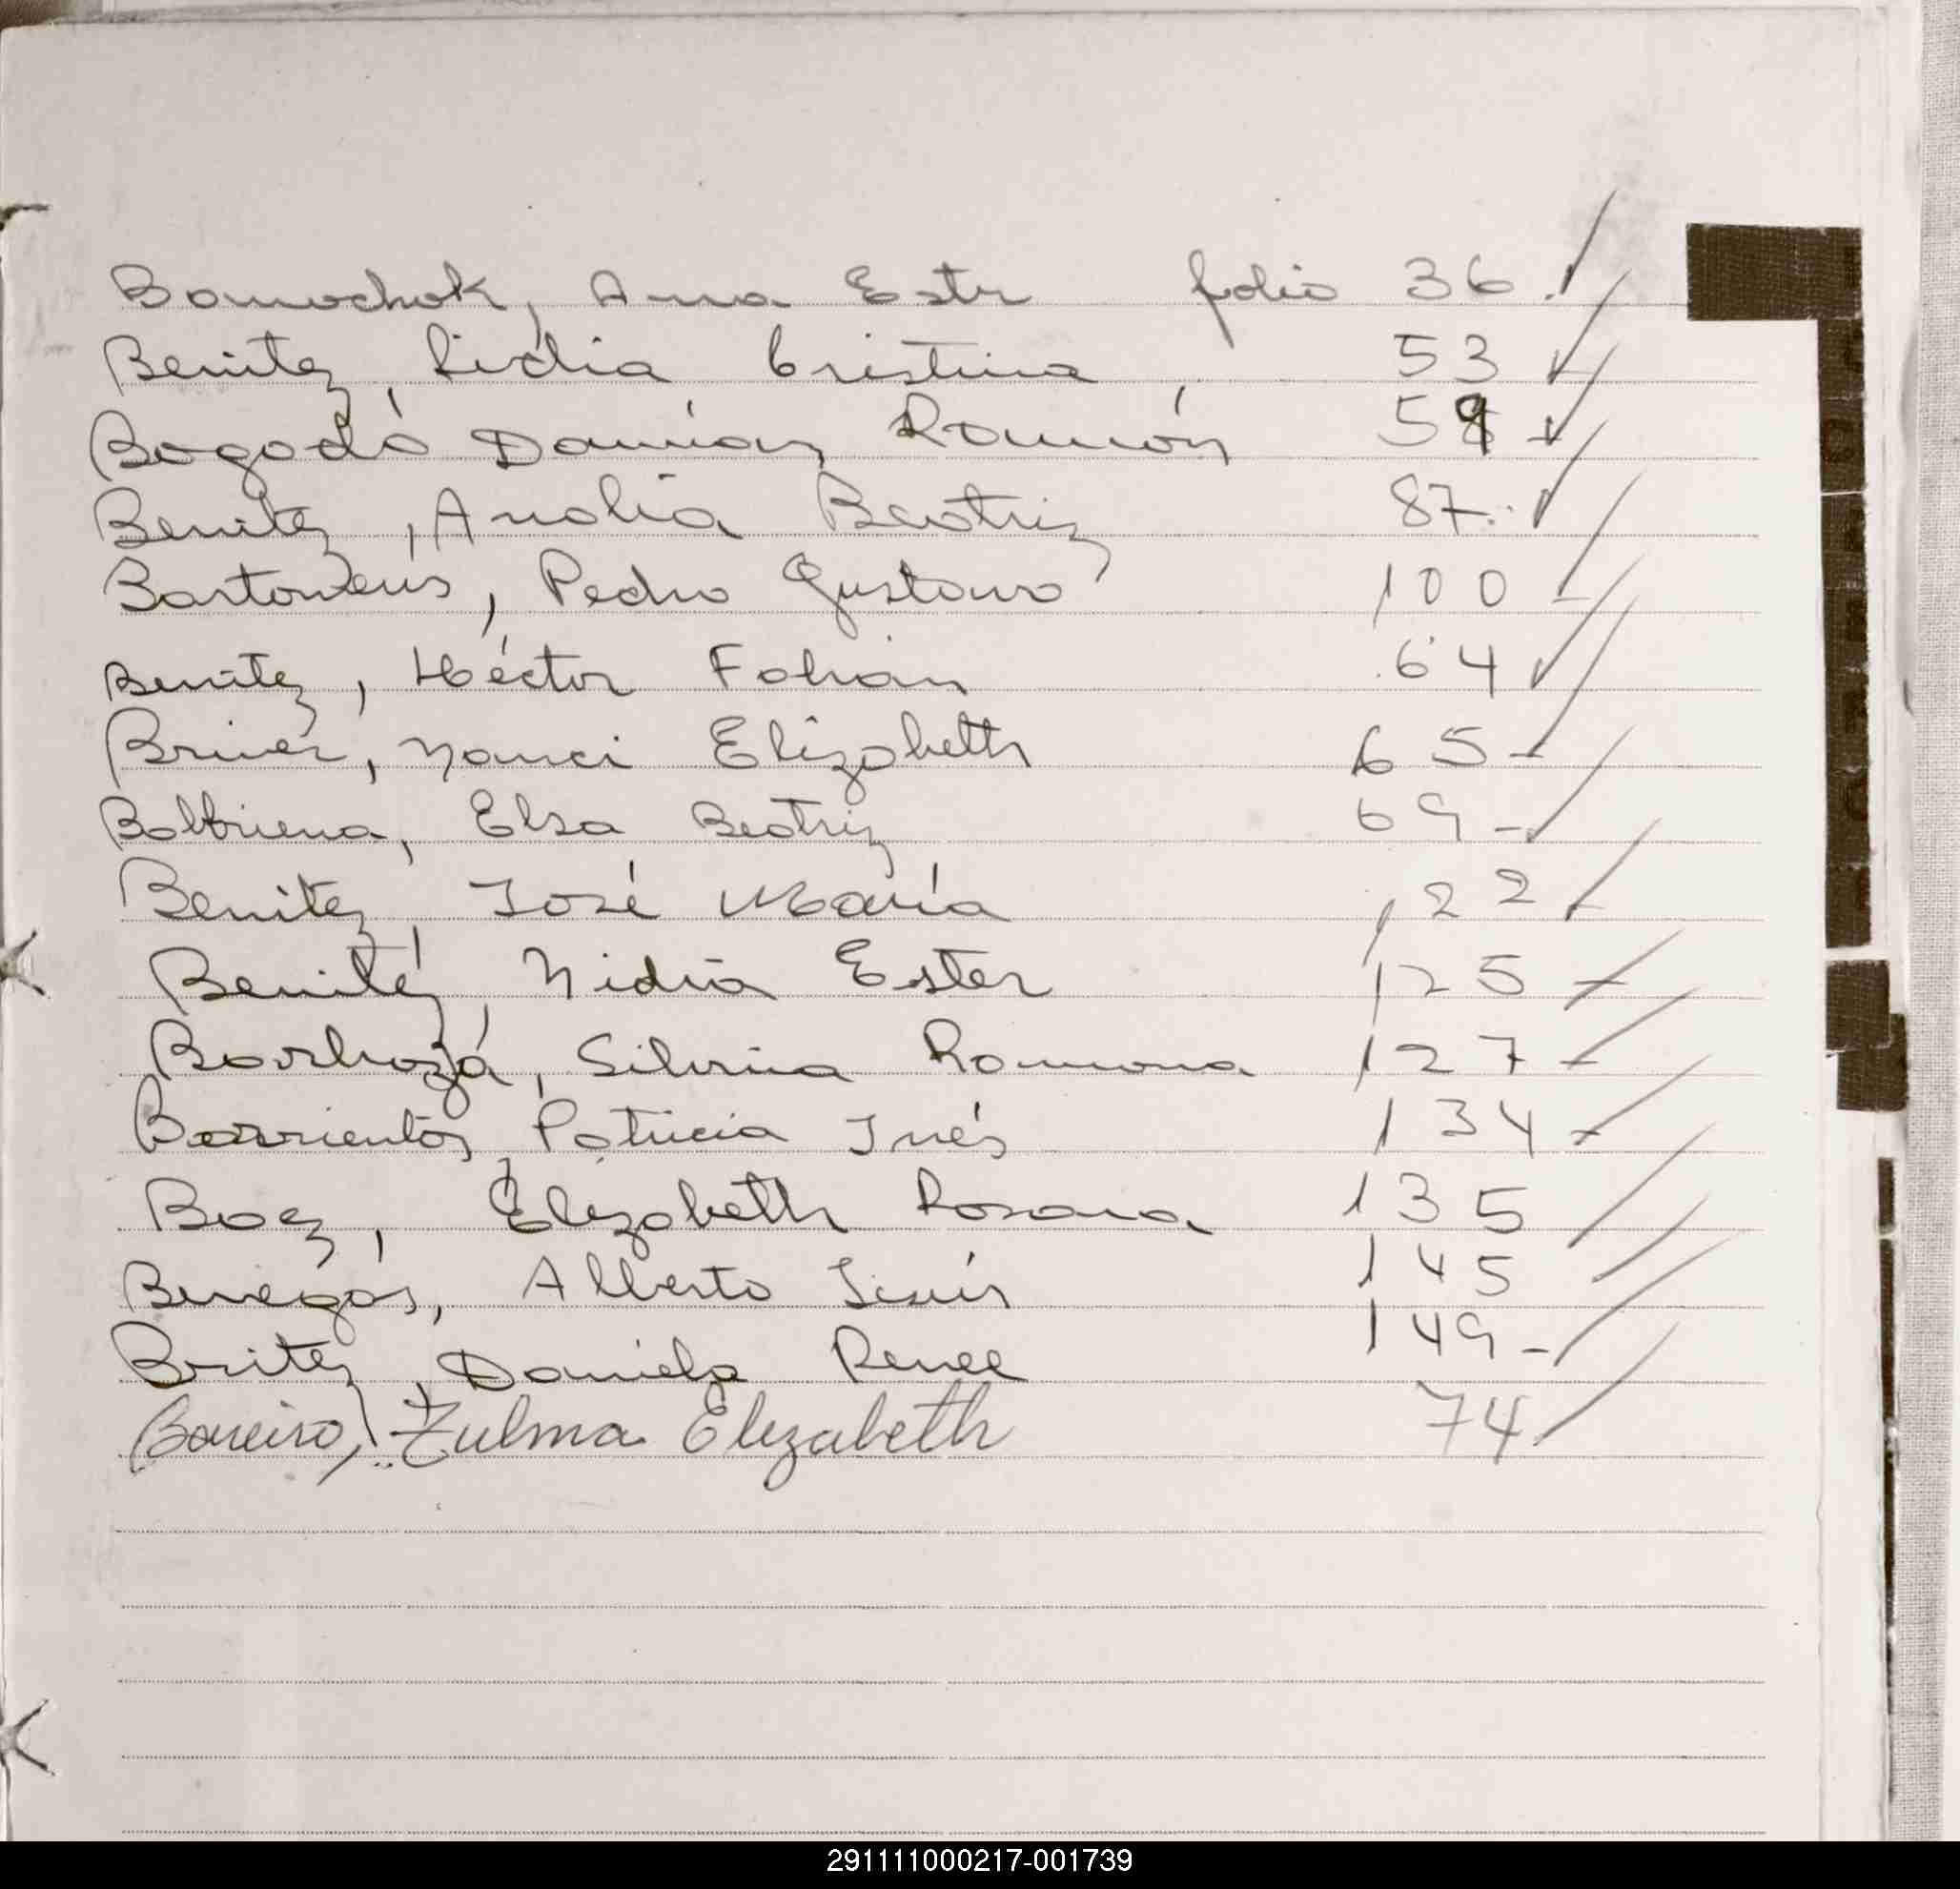 Bamochok, Ana Ester folio 36.
Benitez, Lidia Cristina 53
Bogado Damián Ramón 59
Benitez, Analia Beatriz 87.
Bartomeus, Pedro Gustavo 100
Benitez, Héctor Fabian 64
Briner, Nanci Elizabeth 65
Balbuena, Elsa Beatriz 69
Benitez, José María 122
Benitez, Nidia Ester 125
Barboza, Silvina Ramona 127
Barrientos, Patricia Inés 134
Baez, Elizabeth Rosana 135
Benegas, Alberto Jesús 145
Britez, Daniela Renee 149
Bareiro, Zulma Elizabeth 74
291111000217-001739